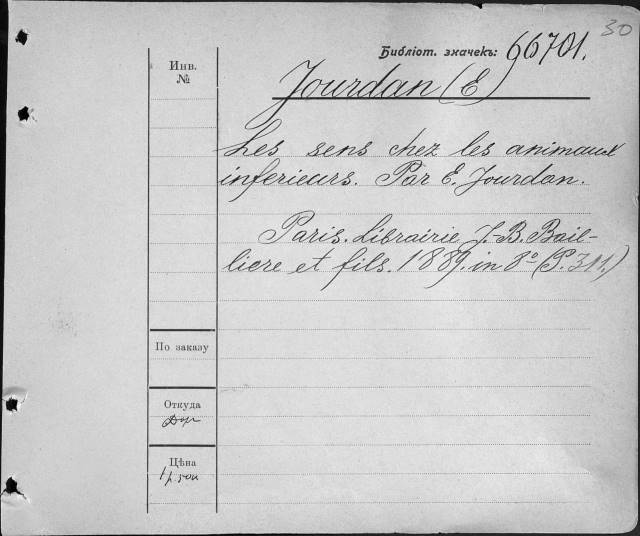 30
Библіот. значекъ: 66701.
Инв.
№
Jourdan (E)
Les sens chez les animaux
inferieurs. Par E. Jourdan.
Paris. Librairie J.-B. Bail-
liere et fils. 1889. in 8º (P. 311.)
По заказу
Откуда
Дар
Цѣна
1 р. 50 к